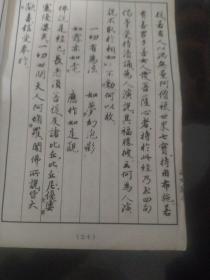 提若有人以滿無量阿僧祇世界七寶持用布施若
有善男子善女人發菩薩心者持於此經乃至四句
偈等受持讀誦為人演說其福勝彼云何為人演
說不取於相如如不動何以故
一切有為法 如夢幻泡影
如露亦如電 應作如是觀
佛說是經已長老須菩提及諸比丘比丘尼優婆
塞優婆夷一切世間天人阿修羅聞佛所說皆大
歡喜信受奉行
(24)